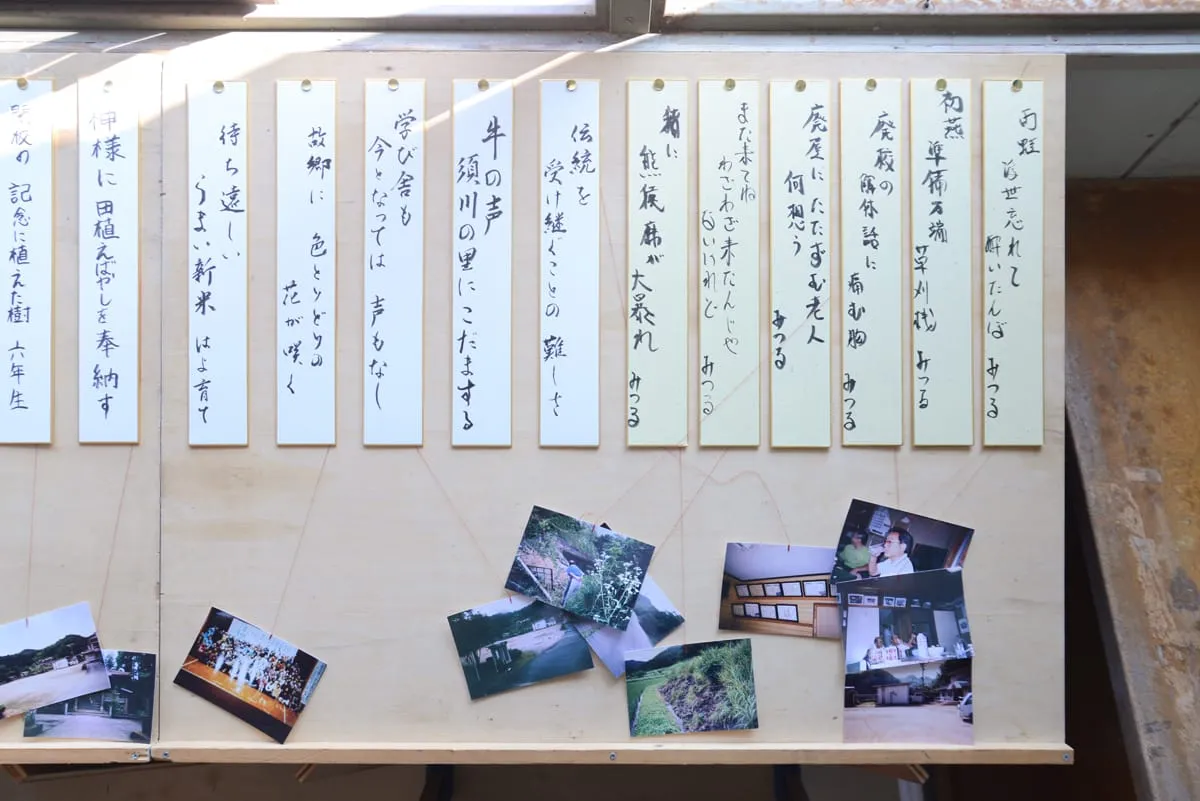 雨蛙
浮世忘れて
酔いたんぼ みつる
初燕
準備万端
草刈機 みつる
廃校の
解体話に
痛む胸 みつる
廃屋にたたずむ老人
何想う
みつる
また来てね
わざわざ来たんじゃ
ないけれど みつる
猪に
熊猴鹿が
大暴れ みつる
伝統を
受け継ぐことの 難しさ
牛の声
須川の里にこだまする
学び舎も
今となっては 声もなし
故郷に 色とりどりの
花が咲く
待ち遠しい
うまい新米 はよ育て
神様に 田植えばやしを奉納す
閉校の 記念に植えた樹 六年生